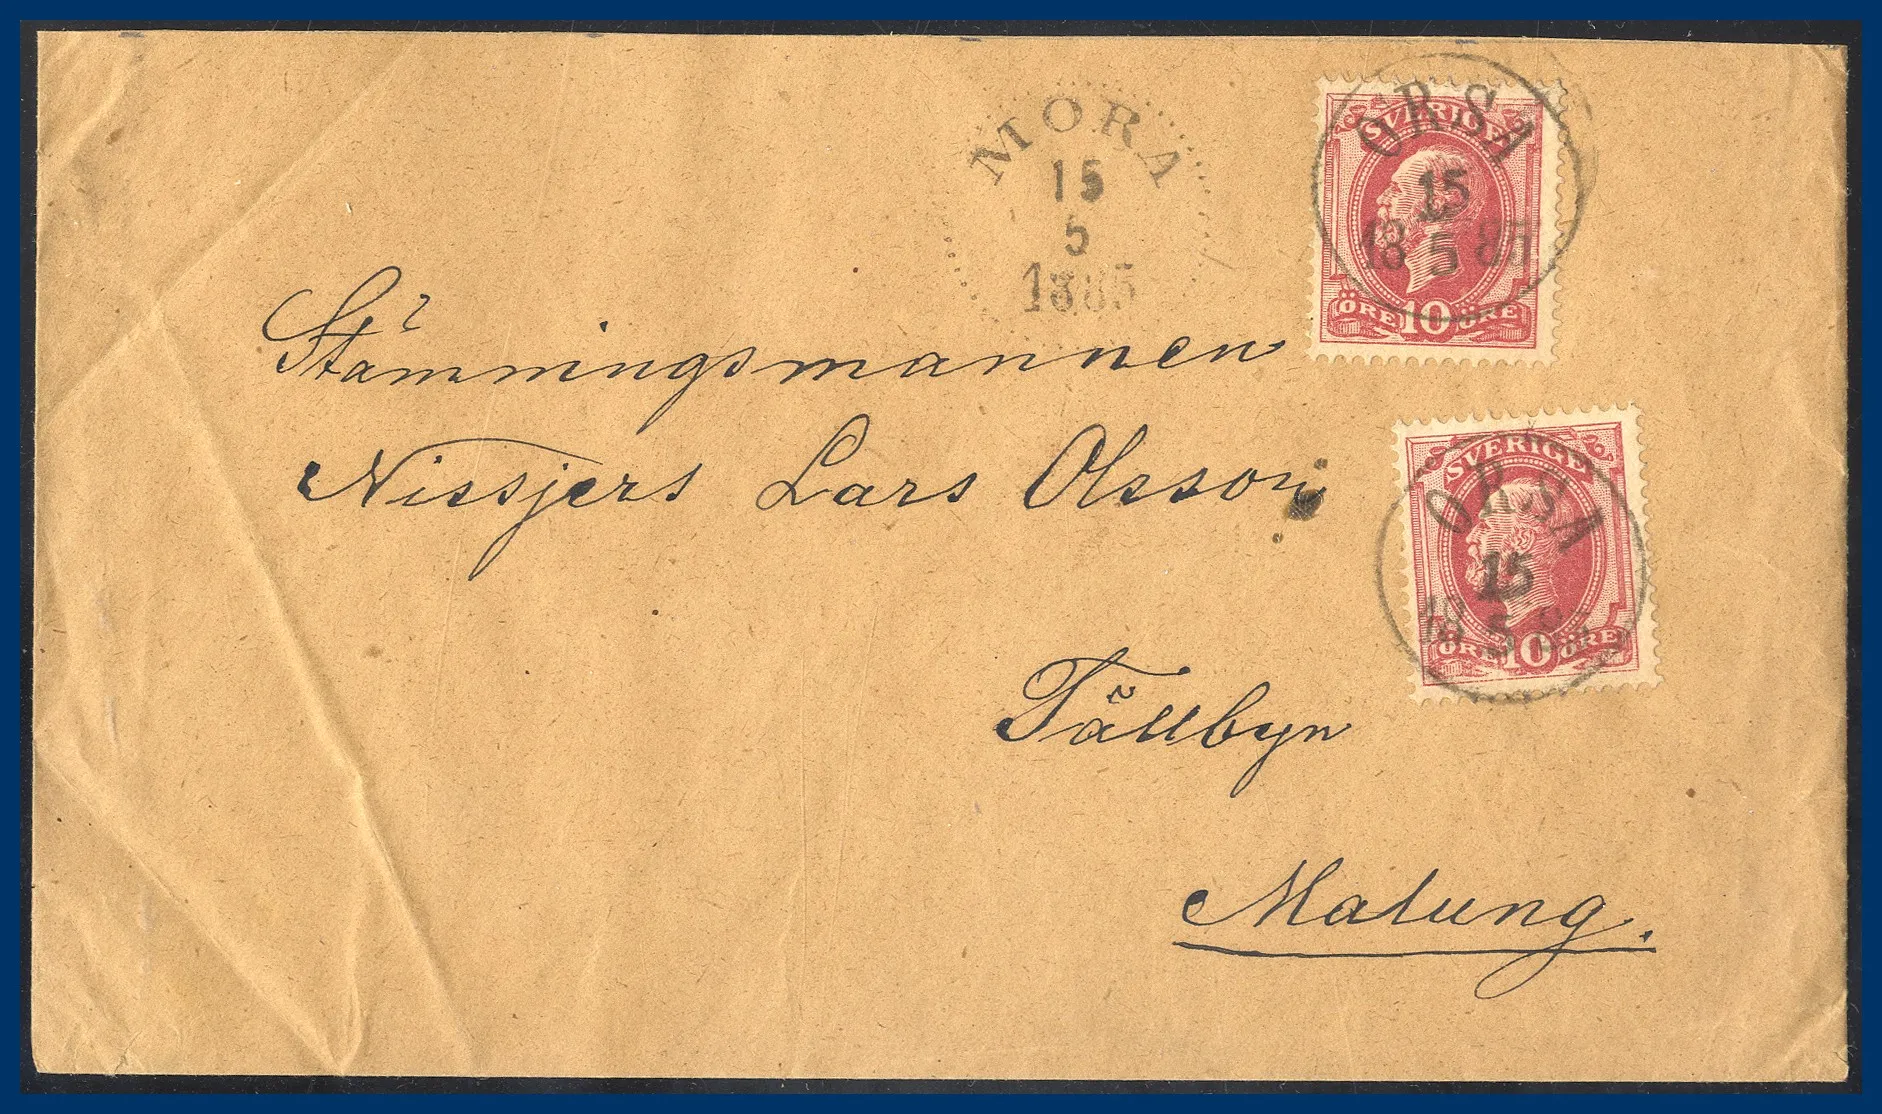 MORA
15
5
1885
SVERIGE
ÖRE 10 ÖRE
ORSA
15
18 5 85
Stämningsmannen
Nissjers Lars Olsson
SVERIGE
ÖRE 10 ÖRE
ORSA
15
18 5 8
Tällbyn
Malung.